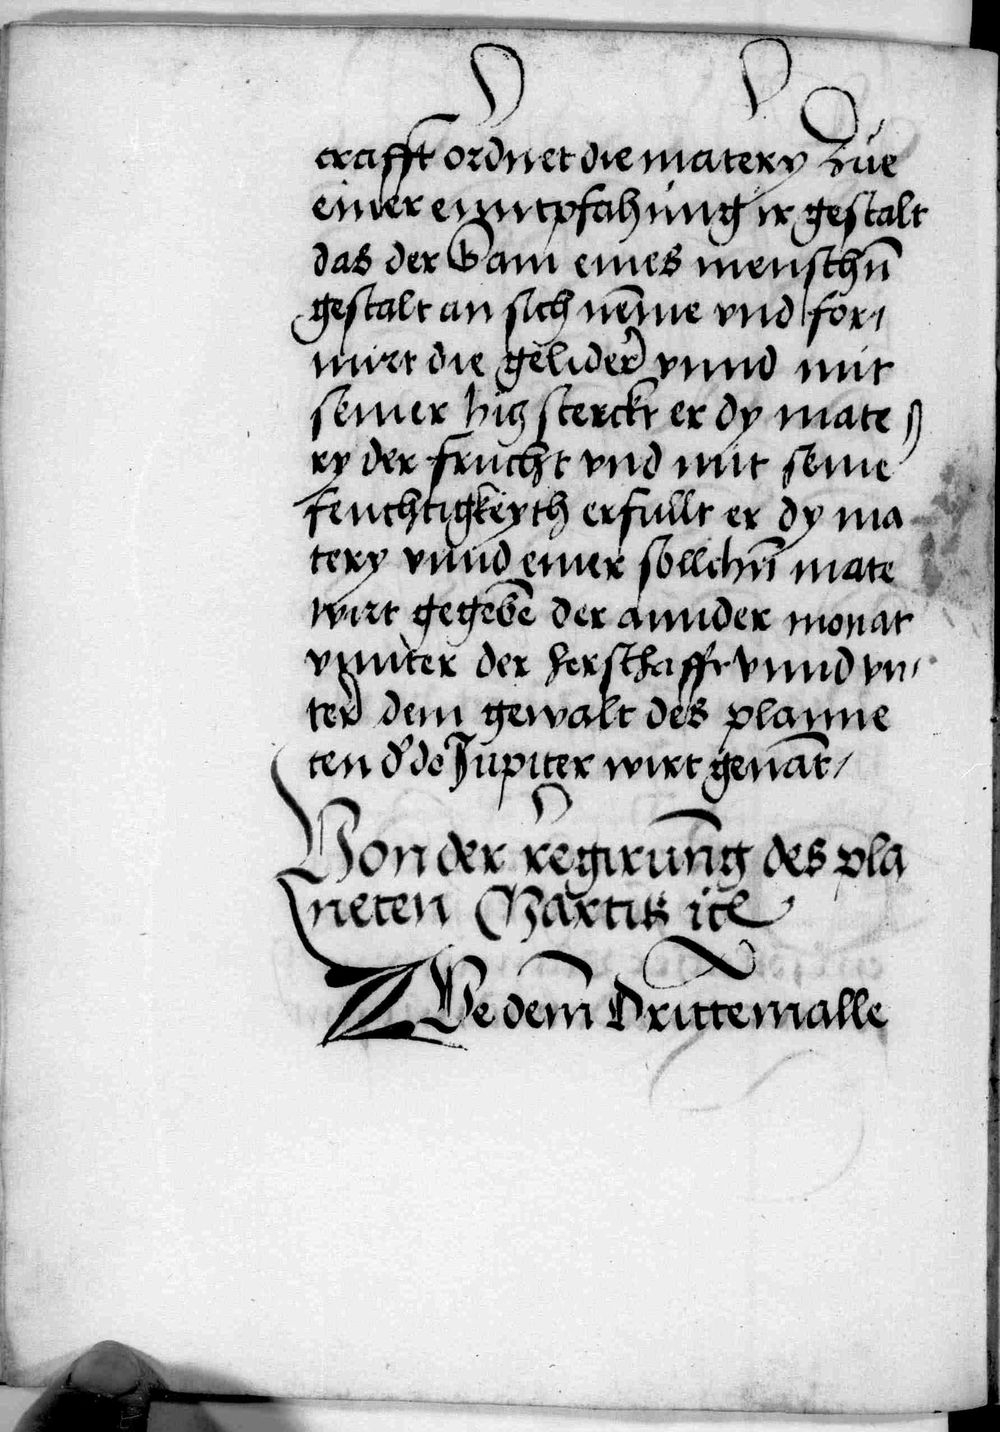 crafft ordnet die matery Zue
einer enntpfahung ir gestalt
das der Sam eines menschn̄
gestalt an sich nēme vnd for/
mirt die gelider vnnd mit
seiner hitz sterckt er dy mate
ry der frucht vnd mit seine
feuchtigkeyth erfullt er dy ma
tery vnnd einer sollchn̄ mate
wirt gegebē der annder monat
vnnter der herschafft vnnd vn/
ter dem gewalt des planne
ten d' do Jupiter wirt genāt/
Von der regirung des pla
neten Martis ite
ZVe dem Drittemalle